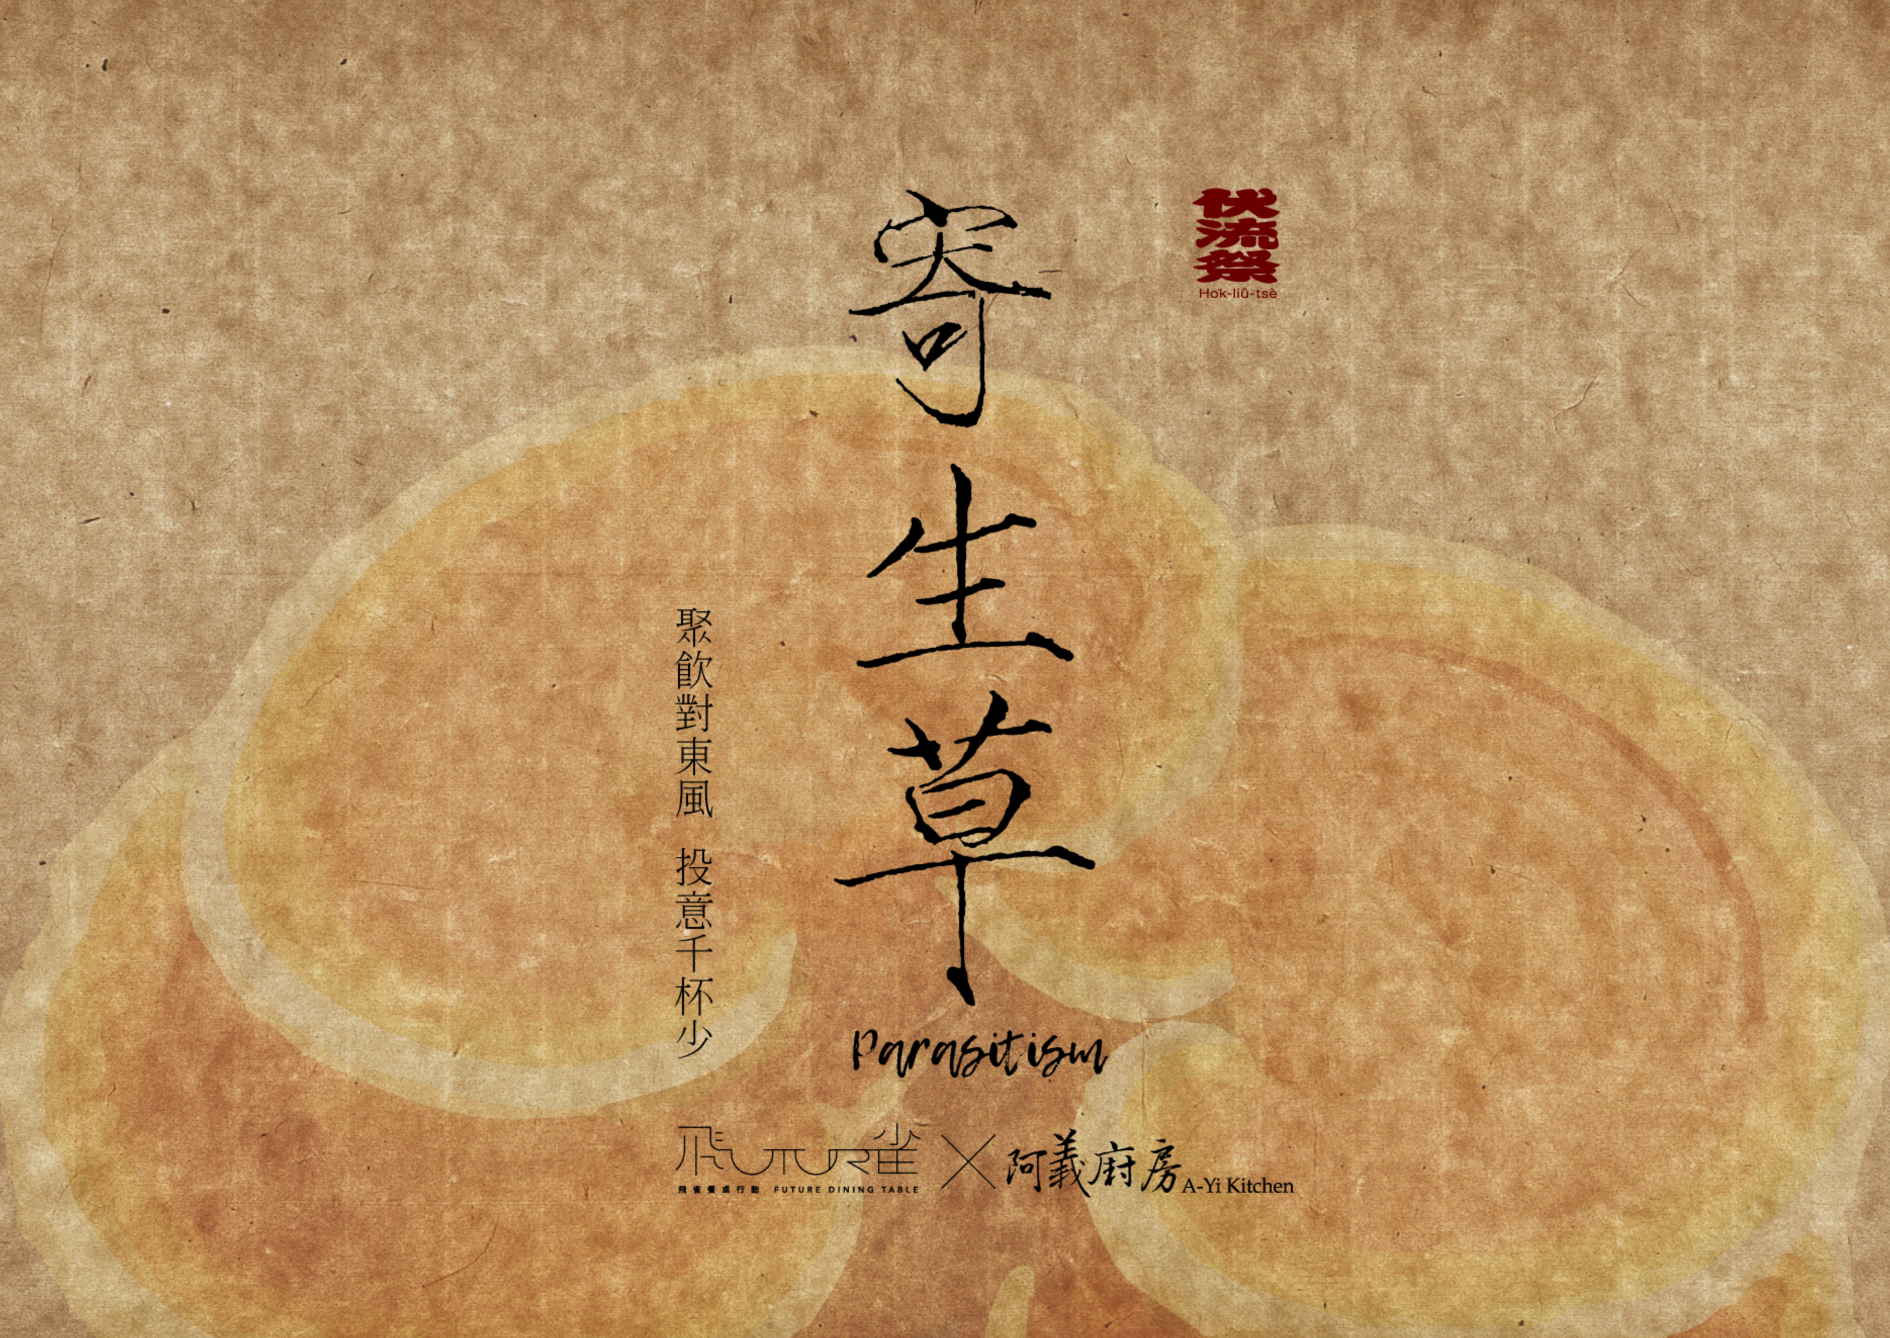 伏流祭
Ho̍k-liû-tsè
寄生草
聚飲對東風 投意千杯少
Parasitism
飛UTUR雀
飛雀餐桌行動 FUTURE DINING TABLE
×
阿義廚房 A-Yi Kitchen